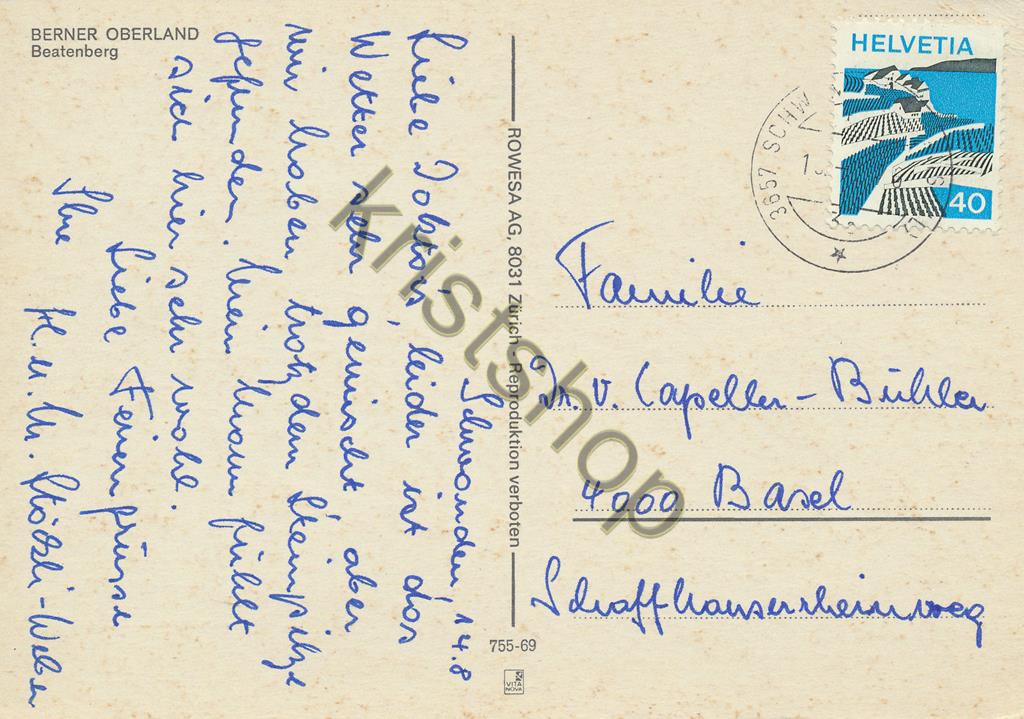 BERNER OBERLAND
Beatenberg
Schwanden, 14.8
Liebe Doktors, leider ist das
Wetter sehr gemischt aber
wir haben trotzdem Steinpilze
gefunden. Mein Mann fühlt
sich hier sehr wohl.
Liebe Feriengrüsse
Ihre H. u. M. Stöckli-Weber
ROWESA AG, 8031 Zürich Reproduktion verboten
755-69
VITA
NOVA
HELVETIA
40
3657 SCHW
Familie
Dr. V. Capeller-Bühler
4000 Basel
Schaffhauserrheinweg
kristshop